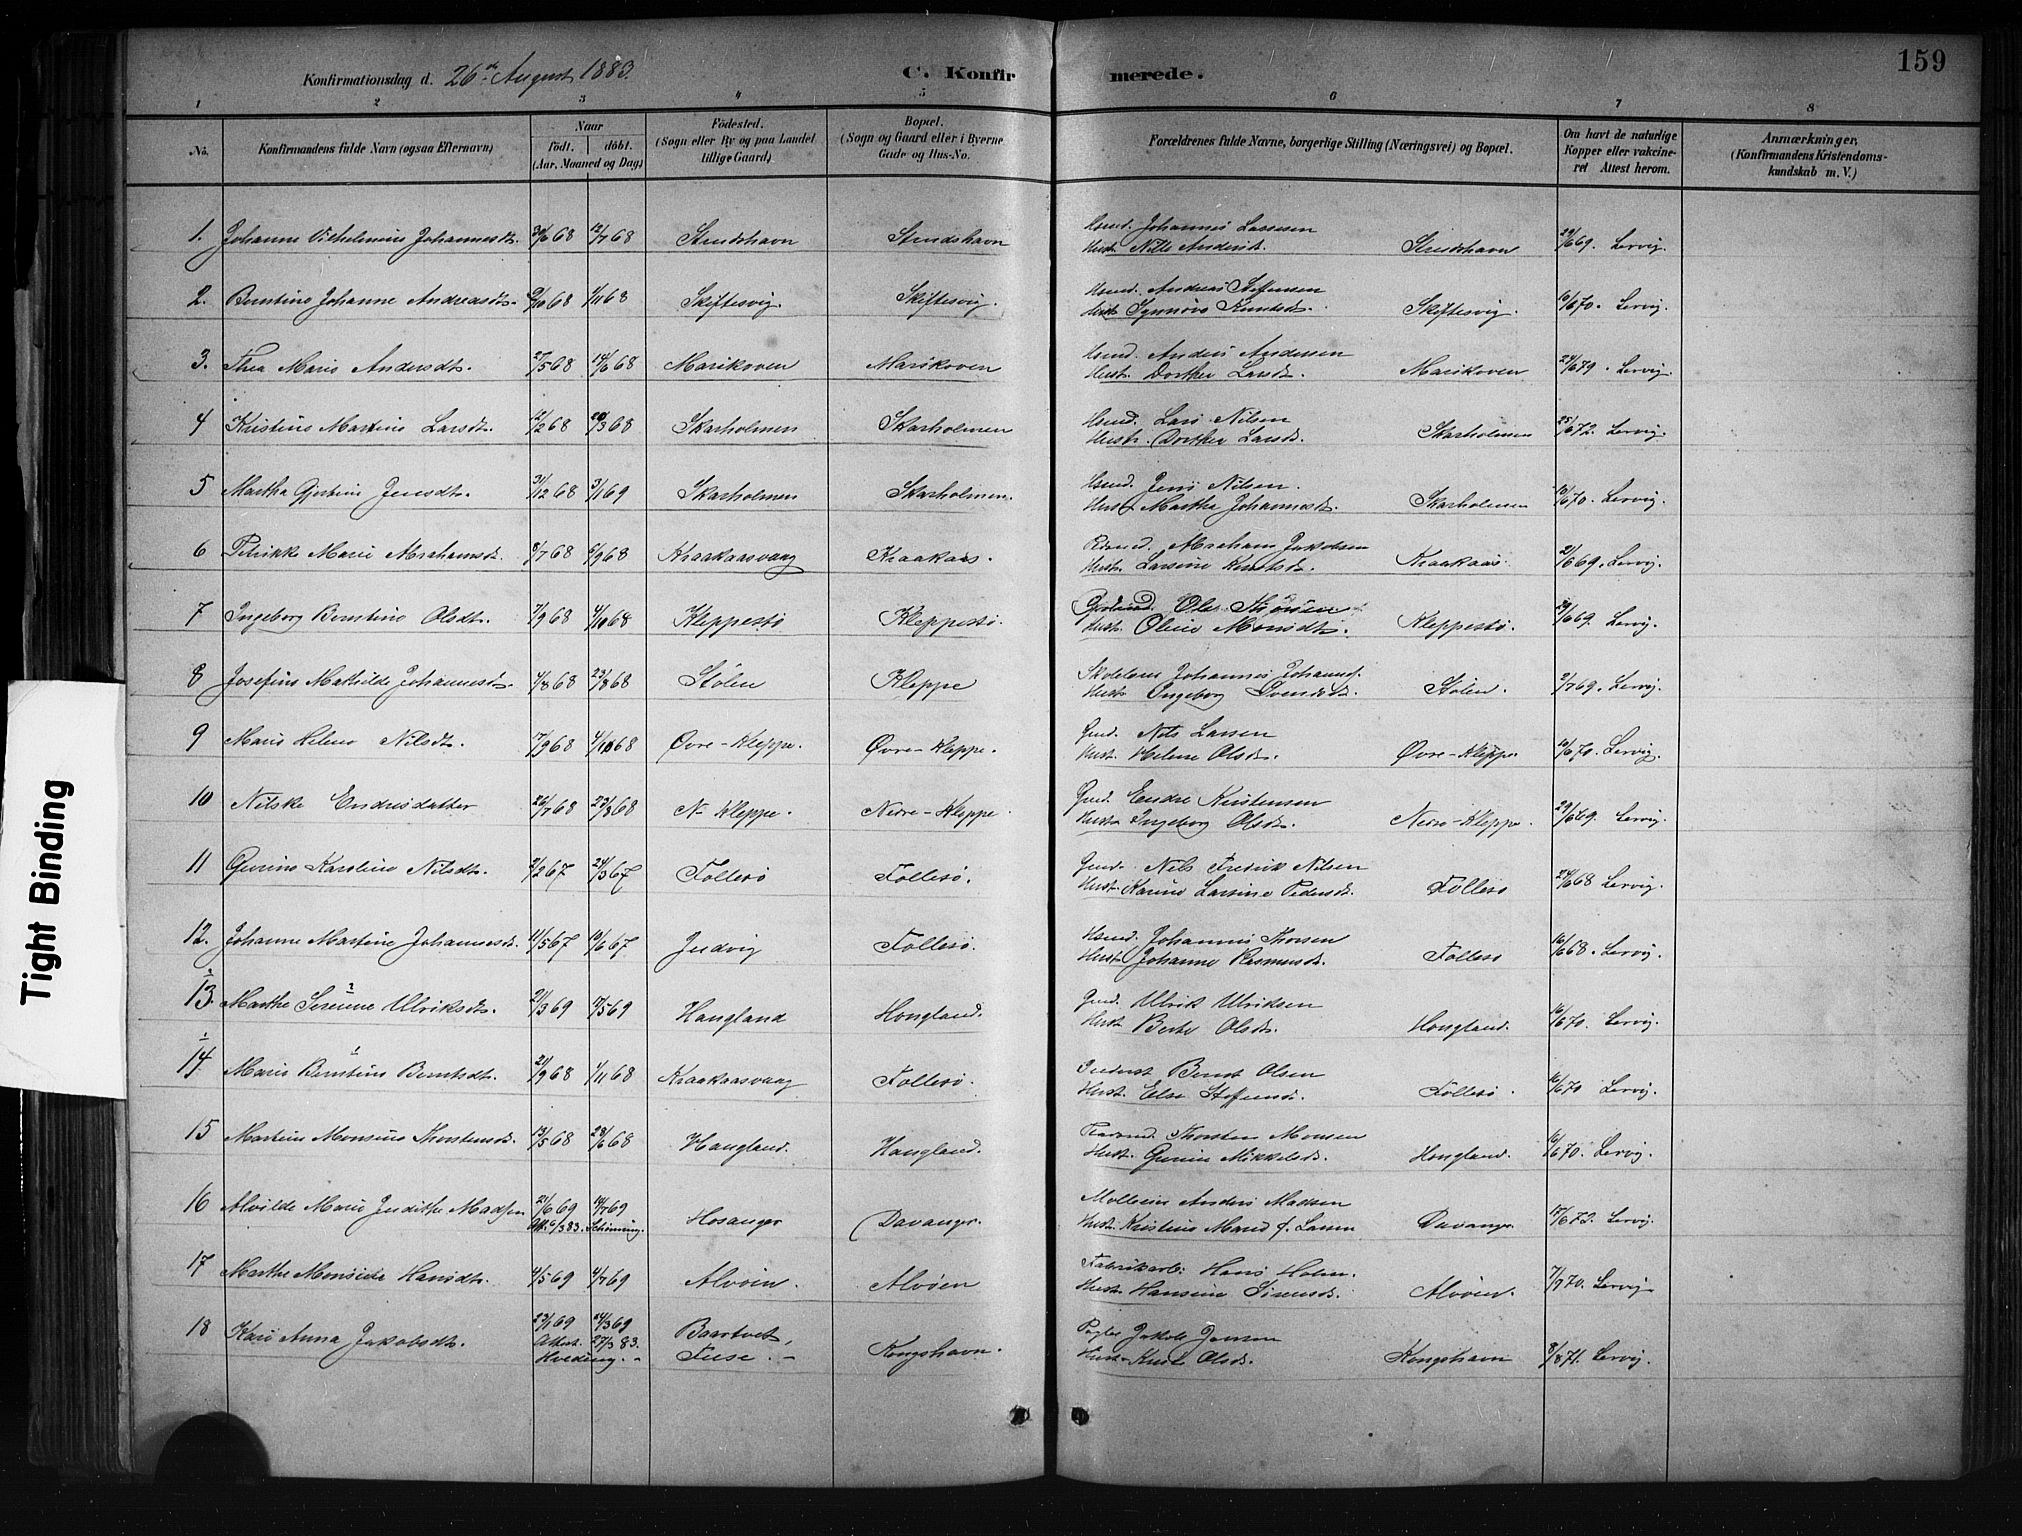 159
Konfirmationsdag d. 26de August 1883.
C. Konfirmerede.
1 2 3 4 5 6 7 8
No. Konfirmandens fulde Navn (ogsaa Efternavn) Naar født. døbt. (Aar, Maaned og Dag) Fødested. (Sogn eller By og paa Landet tillige Gaard) Bopæl. (Sogn og Gaard eller i Byerne Gade og Hus-No. Forældrenes fulde Navne, borgerlige Stilling (Næringsvei) og Bopæl. Om havt de naturlige Kopper eller vakcineret Attest herom. Anmærkninger, (Konfirmandens Kristendomskundskab m. V.)
1. Johanne Vilhelmine Johannesdt. 30/6 68 12/7 68 Strudshavn Strudshavn Hsmd. Johannes Lassesen
Hust. Nille Andersd. Strudshavn 29/6 69. Lervig.
2. Berntine Johanne Andreasdt. /10 68 1/11 68 Skiftesvig. Skiftesvig. Hsmd. Andreas Steffensen
Hust. Synnøve Knutsdt. Skiftesvig. 10/6 70. Lervig.
3. Thea Marie Andersdt. 27/5 68 14/6 68 Marikoven Marikoven Hsmd. Anders Andersen
Hustr. Dorthea Larsdt. Marikoven 24/6 79. Lervig.
4 Kristine Martine Larsdt. 12/2 68 /3 68 Skarholmen Skarholmen Hsmd. Lars Nilsen
Hustr. Dorthea Larsdt. Skarholmen 25/6 72. Lervig.
5 Martha Gjertine Jensdt. 31/12 68 3/1 69 Skarholmen Skarholmen. Hsmd. Jens Nilsen.
Hust. Martha Johannesdt. Skarholmen 10/6 70. Lervig.
6 Petrikke Marie Abrahamsdt. 8/7 68 6/9 68 Kraakaasvaag Kraakaas. Abraham Jakobsen
Hust. Larsine Knutsdt. Kraakaas. 21/6 69. Lervig.
7 Ingeborg Berntine Olsdt. 7/9 68 4/10 68 Kleppestø Kleppestø. Ole
Hust. Oline Monsdt. Kleppestø. 29/6 69. Lervig.
8 Josefine Mathilde Johannesdt. 4/8 68 23/8 68 Stølen Kleppe Skolelærer Johannes Johannes.
Hust. Ingeborg Stølen. 2/7 69. Lervig.
9 Marie Helene Nilsdt. 17/9 68 4/10 68 Øvre-Kleppe. Øvre-Kleppe. Gmd. Nils Larsen
Hust. Helene Olsdt. Øvre-Kleppe 10/6 70. Lervig.
10 Nilske Endresdatter 26/7 68 23/8 68 N-Kleppe. Nedre-Kleppe. Gmd. Endre Kristensen
Hust. Ingeborg Olsdt. Nedre-Kleppe. 29/6 69. Lervig.
11 Gurine Karoline Nilsdt. 2/2 67 24/3 67 Follesø Follesø. Gmd. Nils Fredrik Nilsen
Hust. Karine Larsine Pedersdt. Follesø 24/6 68 Lervig.
12. Johanne Martine Johannesdt. 11/5 67 10/6 67 Indvig Follesø. Hsmd. Johannes Thorsen
Hust. Johanne Rasmusdt. Follesø 16/6 68. Lervig.
13. Marthe Serine Ulriksdt. 21/3 69 17/5 69 Haugland Hougland. Gmd. Ulrik Ulriksen
Hust. Berte Olsdt. Hougland. 16/6 70. Lervig.
14 Marie Berntine Berntsdt. 21/9 68 1/11 68 Kraakaasvaag Follesø. Inderst Bernt Olsen
Hust. Else Steffensdt. Follesø. 16/6 70 Lervig.
15 Martine Monsine Thorstensdt. 13/5 68 28/6 68 Haugland. Haugland. Thorsten Monsen
Hust. Gurine Mikkelsdt. Hougland. 16/6 70. Lervig.
16 Alvilde Marie Judithe Madsen 21/6 69 14/7 69
Att. 6/3 83. Schønning. Hosanger Davanger. Anders Madsen
Hust. Kristine Marie f. Larsen Davanger 17/6 72. Lervig.
17 Marthe Monsine Hansdt. 4/5 69 4/7 69 Alvøen. Alvøen Fabrikarb: Hans Holm.
Hust. Hansine Alvøen. 7/7 70. Lervig.
18 Kari Anna Jakobsdt. 23/1 69 24/3 69
Attest. 27/3 83.
Hveding. Fuse. Kongshavn. Jakob Jonsen
Hust. Olsdt. Kongshavn 8/8 71. Lervig.
Tight Binding